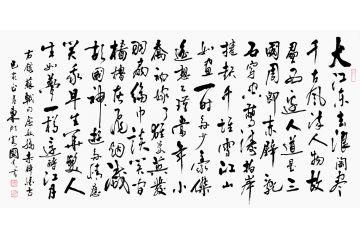 大江东去浪淘尽
千古风流人物故
垒西边人道是三
国周郎赤壁乱
石穿空惊涛拍岸
捲起千堆雪江山
如画一时多少豪傑
遥想公瑾当年小
乔初嫁了雄姿英发
羽扇纶巾谈笑间
樯橹灰飞烟灭
故国神游多情应
笑我早生华发人
生如梦一樽还酹江月
右录苏轼词念奴娇赤壁怀古